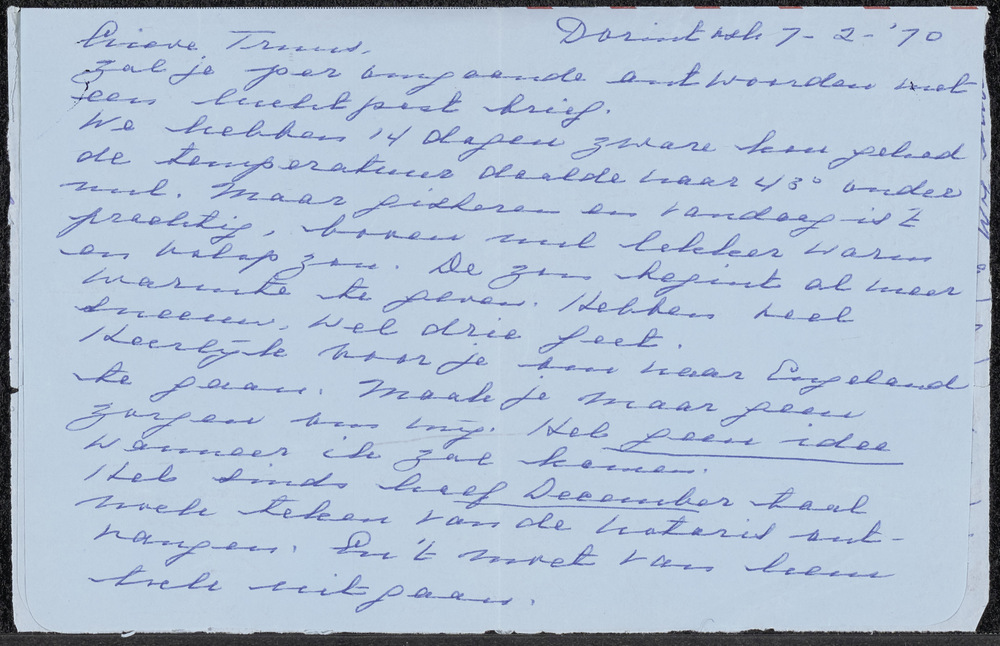 Lieve Truus, Dorintosh 7-2-'70
zal je per omgaande antwoorden met
een luchtpost brief.
We hebben 14 dagen zware kou gehad
de temperatuur daalde naar 43° onder
nul. Maar gisteren en vandaag is 't
prachtig, boven nul lekker warm
en volop zon. De zon begint al meer
warmte te geven. Hebben veel
sneeuw, wel drie feet.
Heerlijk voor je om naar Engeland
te gaan. Maak je maar geen
zorgen om mij. Heb geen idee
wanneer ik zal komen.
Heb sinds half December taal
noch teken van de notaris ont-
vangen. En 't moet van hem
toch uitgaan.